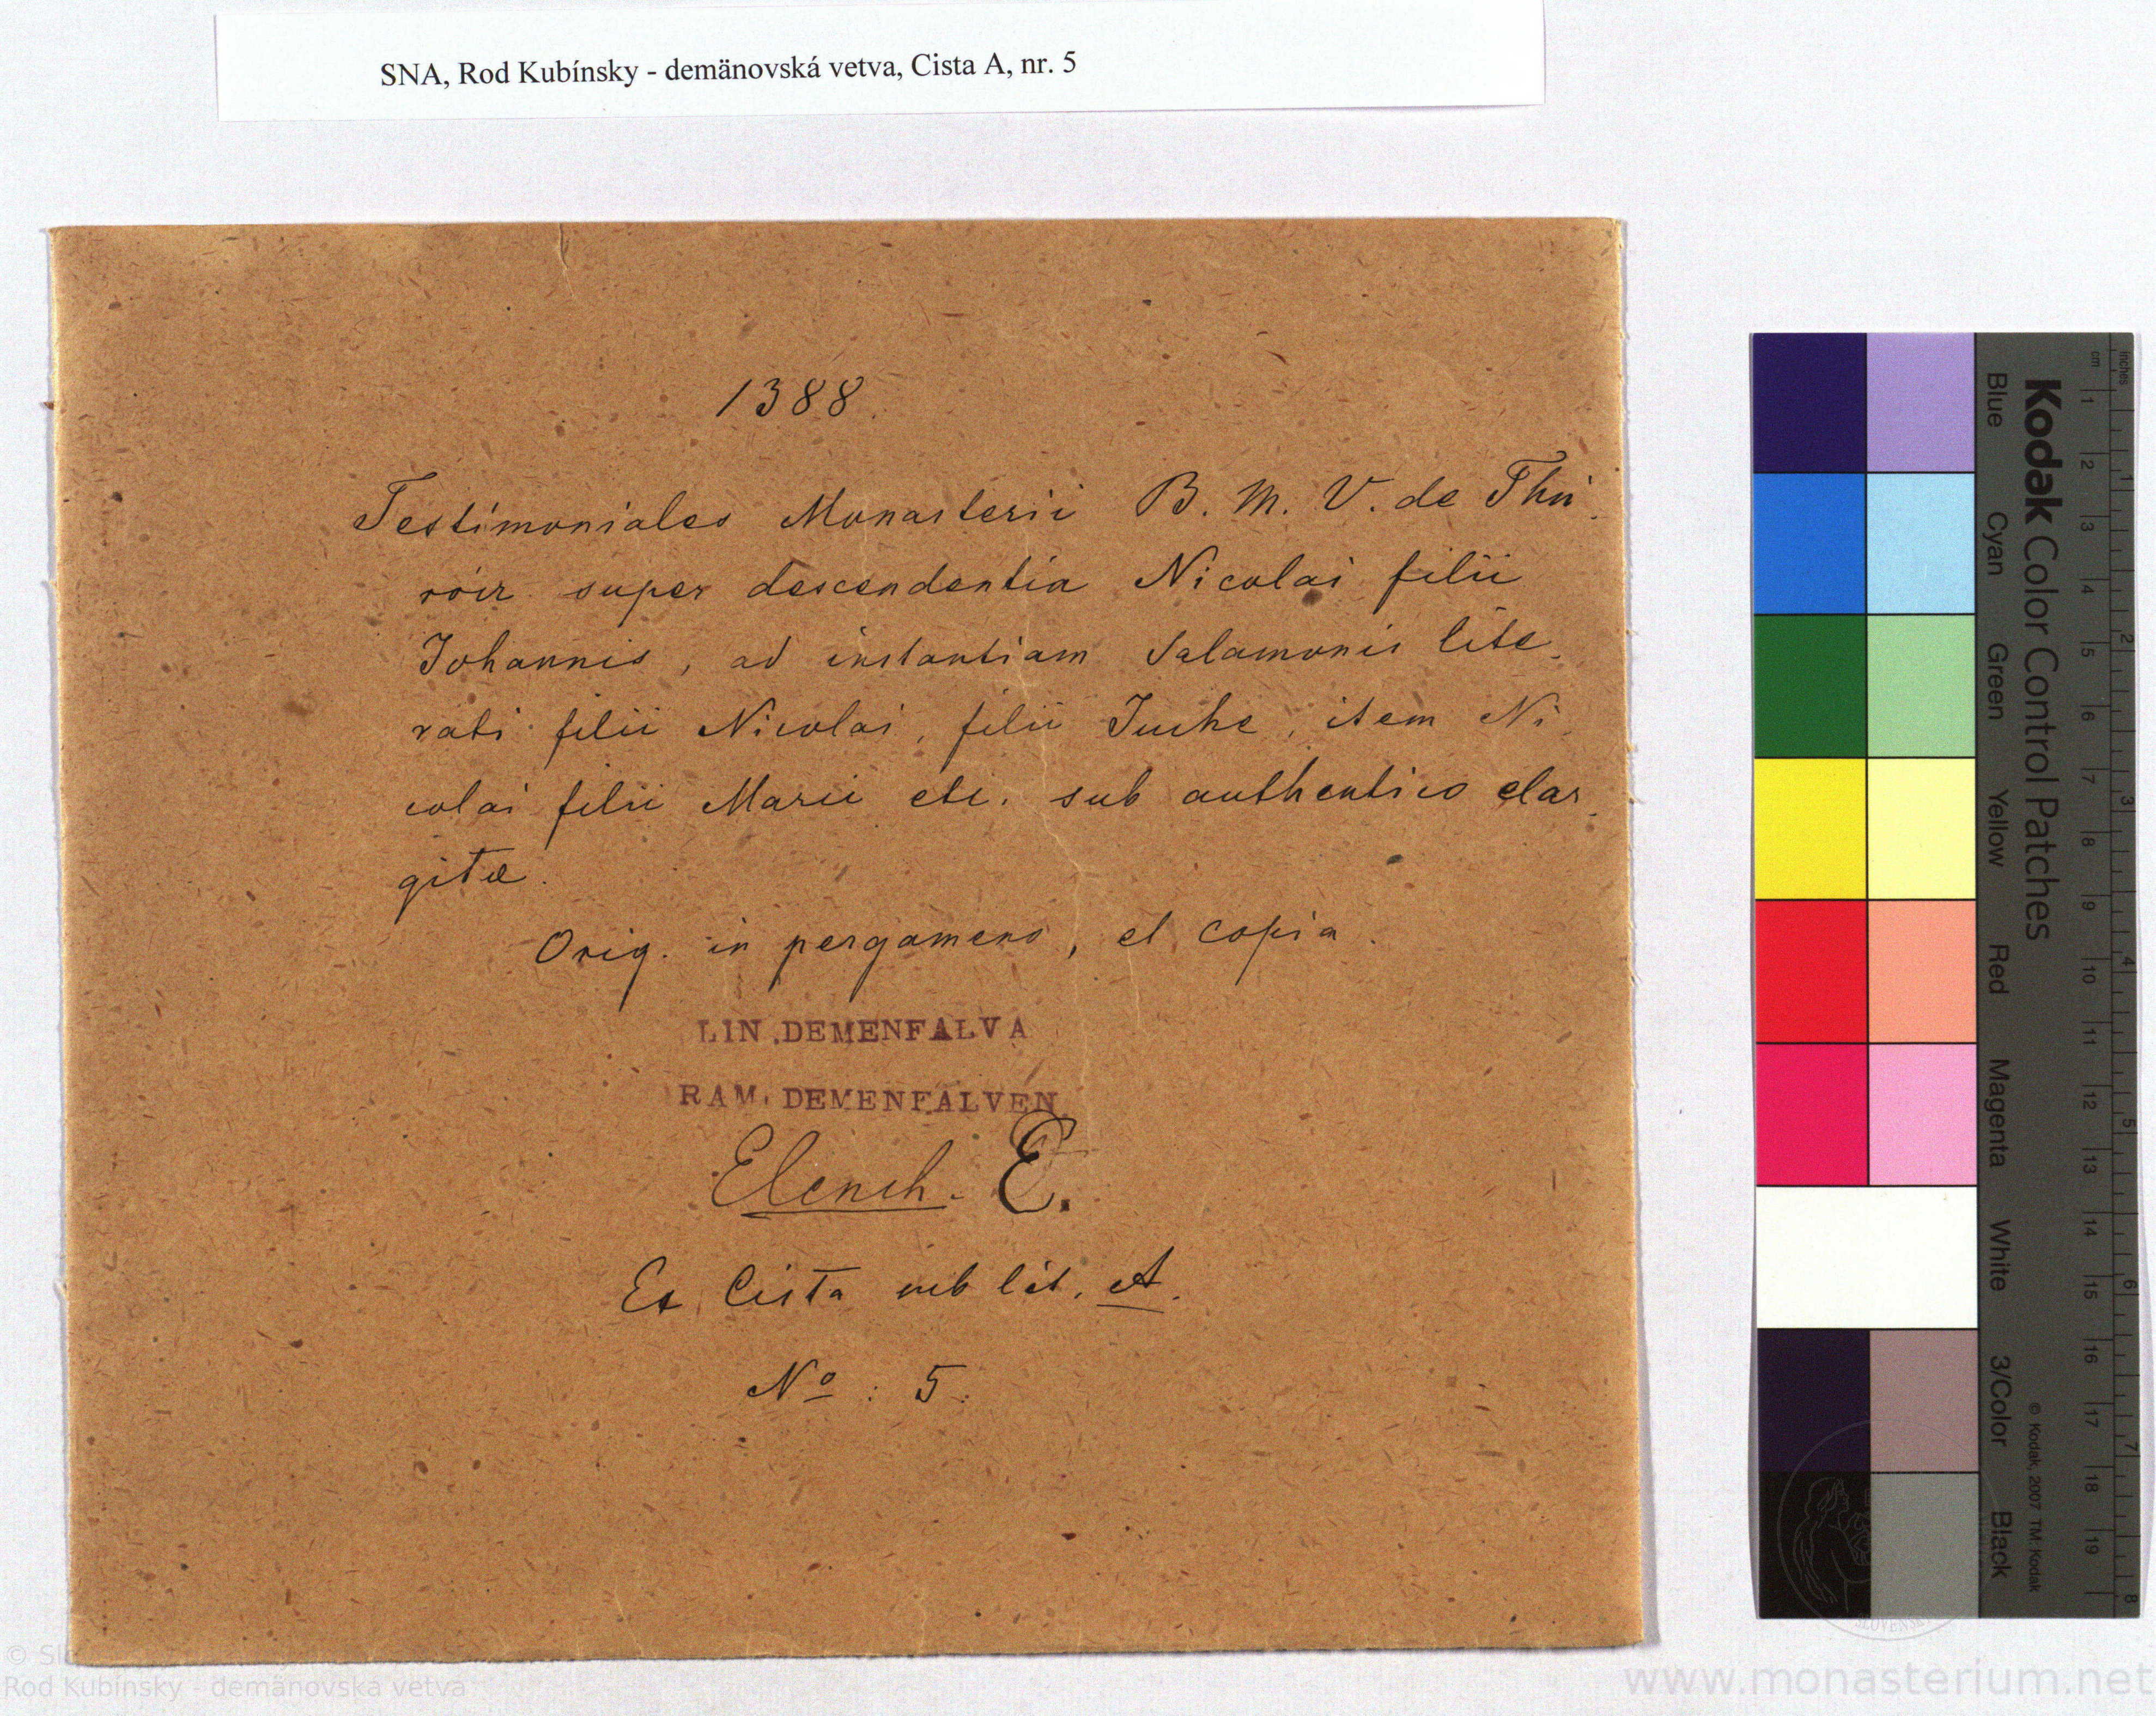 SNA, Rod Kubínsky - demänovská vetva, Cista A, nr. 5
1388.
Testimoniales Monasterii B. M. V. de Thu-
róir super descendentia Nicolai filii
Johannis, ad instantiam Salamonis lite-
rati filii Nicolai, filii Juche, item Ni-
colai filii Marii etc. sub authentico elar-
gitæ.
Orig. in pergameno, et copia.
LIN. DEMENFALVA
RAM. DEMENFALVEN
Elench. E.
Ex Cista sub lit. A.
Nº: 5.
Kodak Color Control Patches
Blue Cyan Green Yellow Red Magenta White 3/Color Black
© Kodak, 2007 TM: Kodak
cm 1 2 3 4 5 6 7 8 9 10 11 12 13 14 15 16 17 18 19
inches 1 2 3 4 5 6 7 8
Rod Kubínsky - demänovská vetva
www.monasterium.net